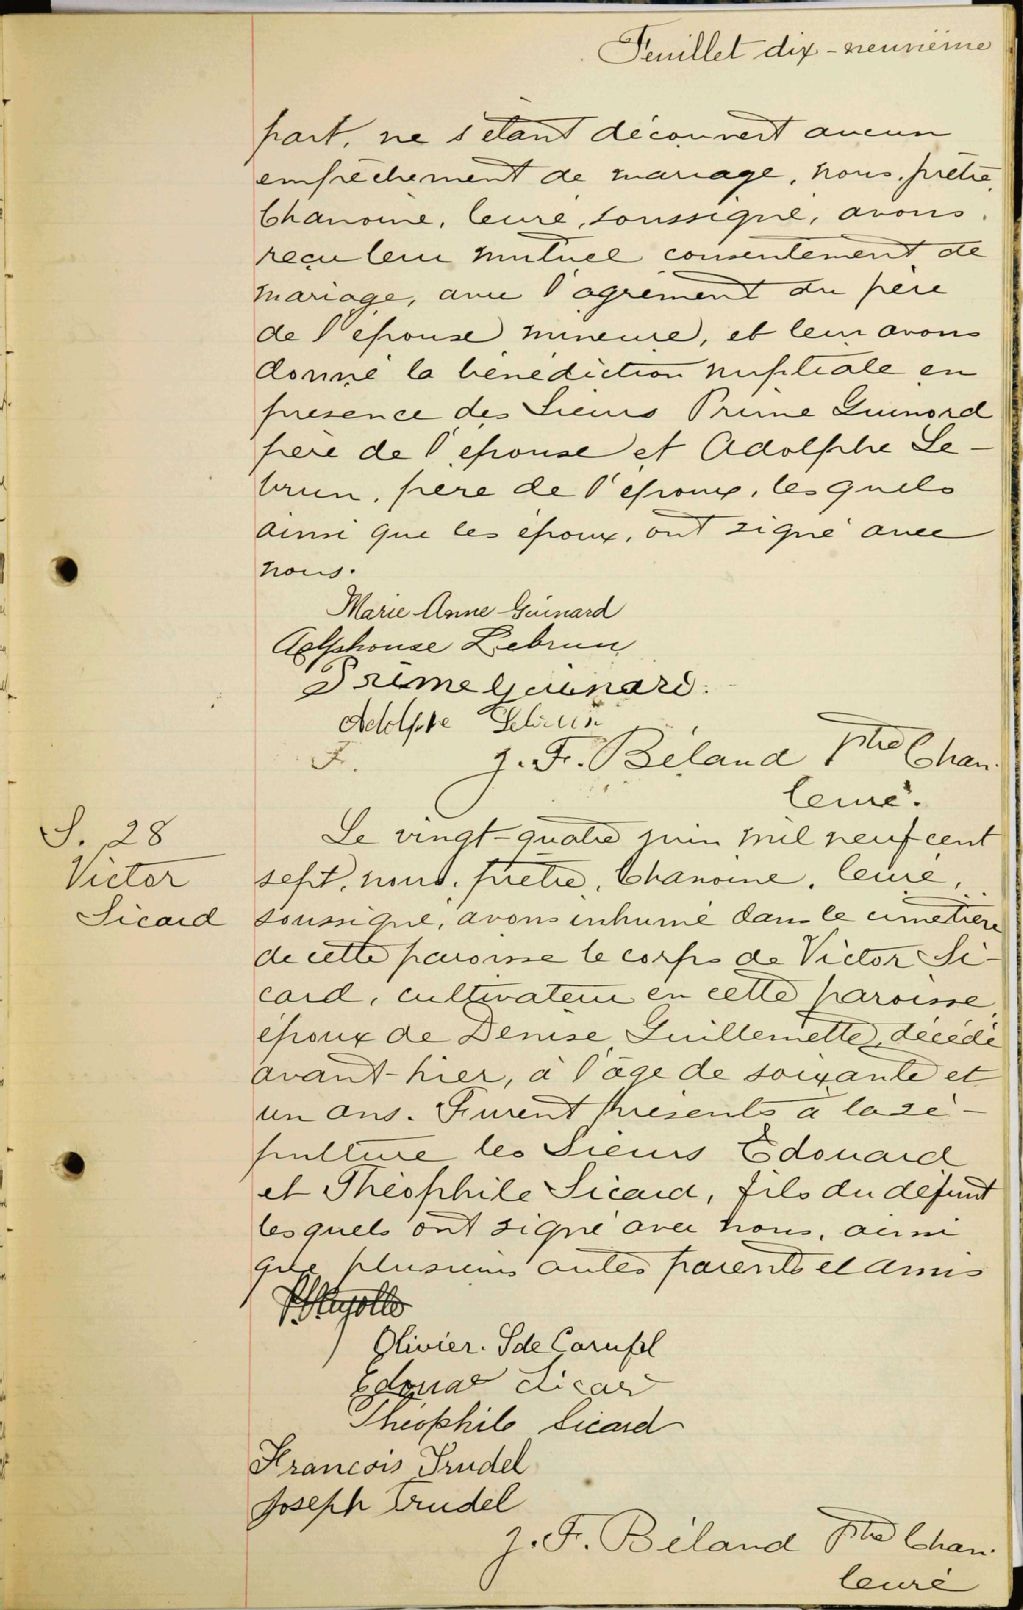 Feuillet dix-neuvième
part, ne s'étant découvert aucun
empêchement de mariage, nous, prêtre,
Chanoine, Curé, soussigné, avons
reçu leur mutuel consentement de
mariage, avec l'agrément du père
de l'épouse mineure, et leur avons
donné la bénédiction nuptiale en
présence des Sieurs Prime Guinard
père de l'épouse et Adolphe Le-
brun, père de l'époux, lesquels
ainsi que les époux, ont signé avec
nous.
Marie Anne Guinard
Alphonse Lebrun
Prime Guinard.
Adolphe Lebrun
F. J. F. Béland Ptre Chan.
Curé.
S. 28
Victor
Sicard
Le vingt-quatre juin mil neuf cent
sept, nous, prêtre, Chanoine, Curé,
soussigné, avons inhumé dans le cimetière
de cette paroisse le corps de Victor Si-
card, cultivateur en cette paroisse,
époux de Denise Guillemette, décédé
avant-hier, à l'âge de soixante et
un ans. Furent présents à la sé-
pulture les Sieurs Edouard
et Théophile Sicard, fils du défunt
lesquels ont signé avec nous, ainsi
que plusieurs autes parents et amis
Olivier. S de Carufel
Edouar Sicard
Théophile Sicard
Francois Trudel
Joseph Trudel
J. F. Béland Ptre Chan.
Curé